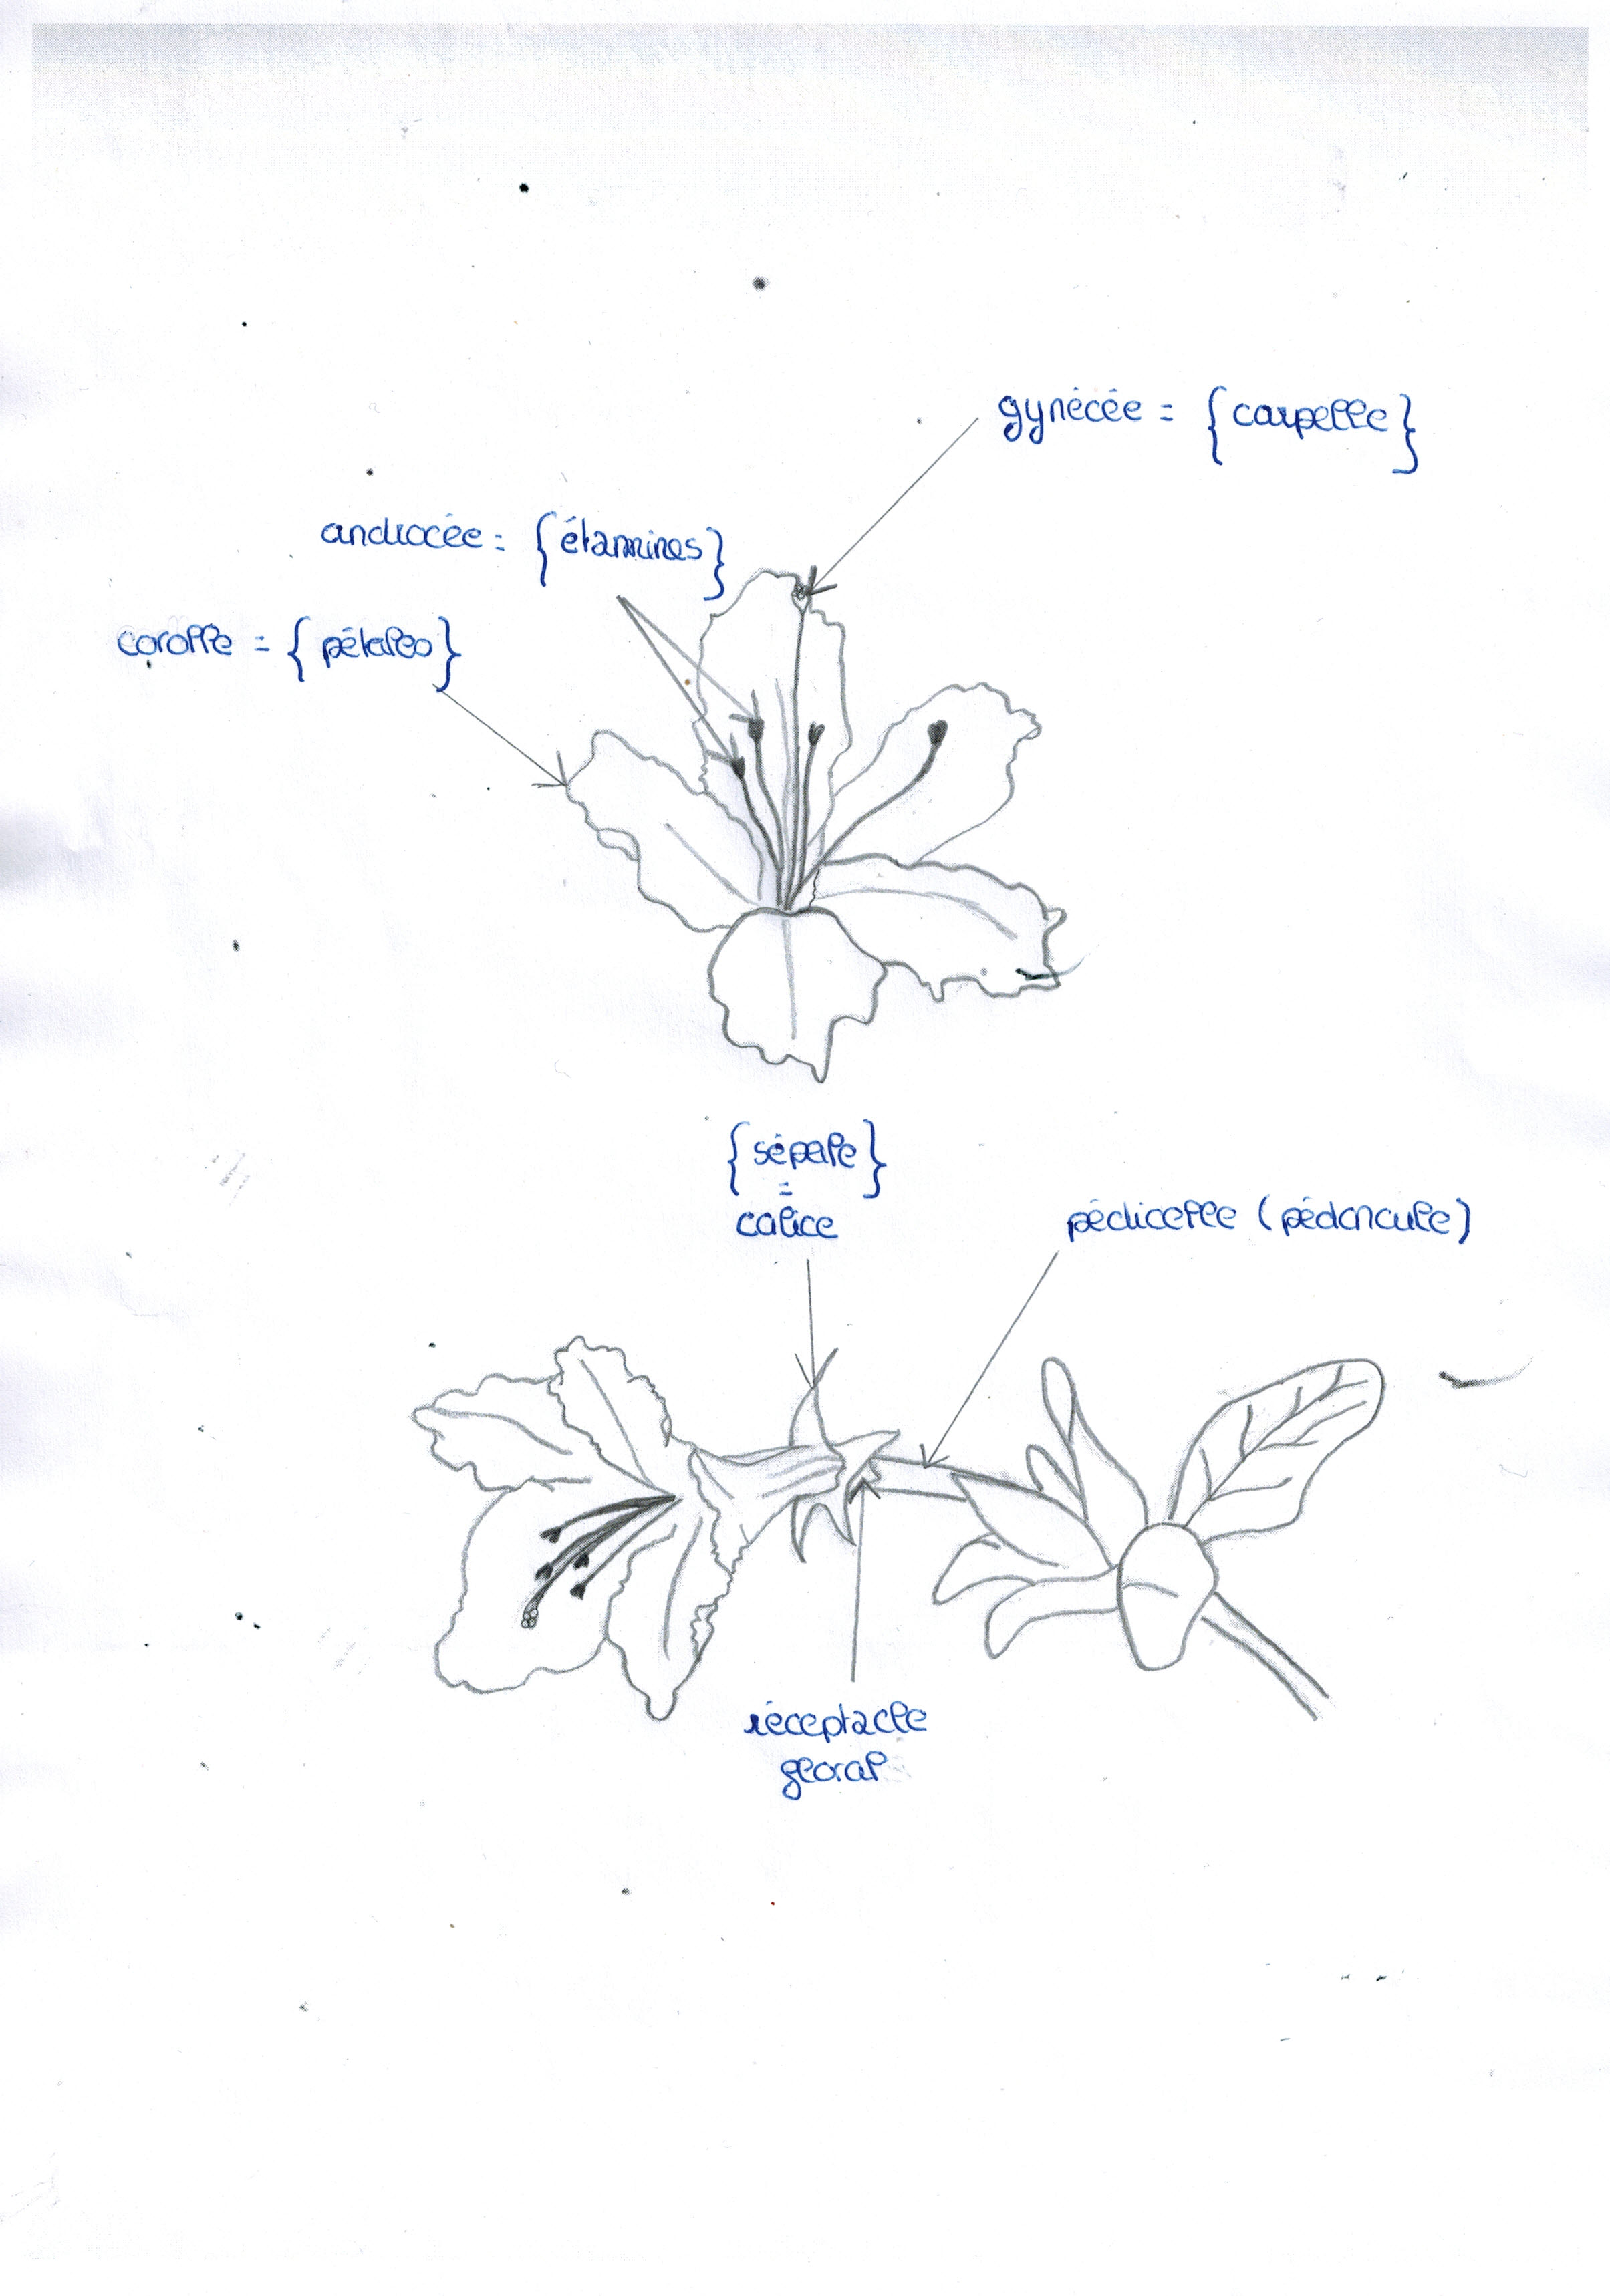 gynécée = {carpelle}
androcée = {étamines}
corolle = {pétales}
{sépale}
=
calice
pédicelle (pédoncule)
réceptacle
floral